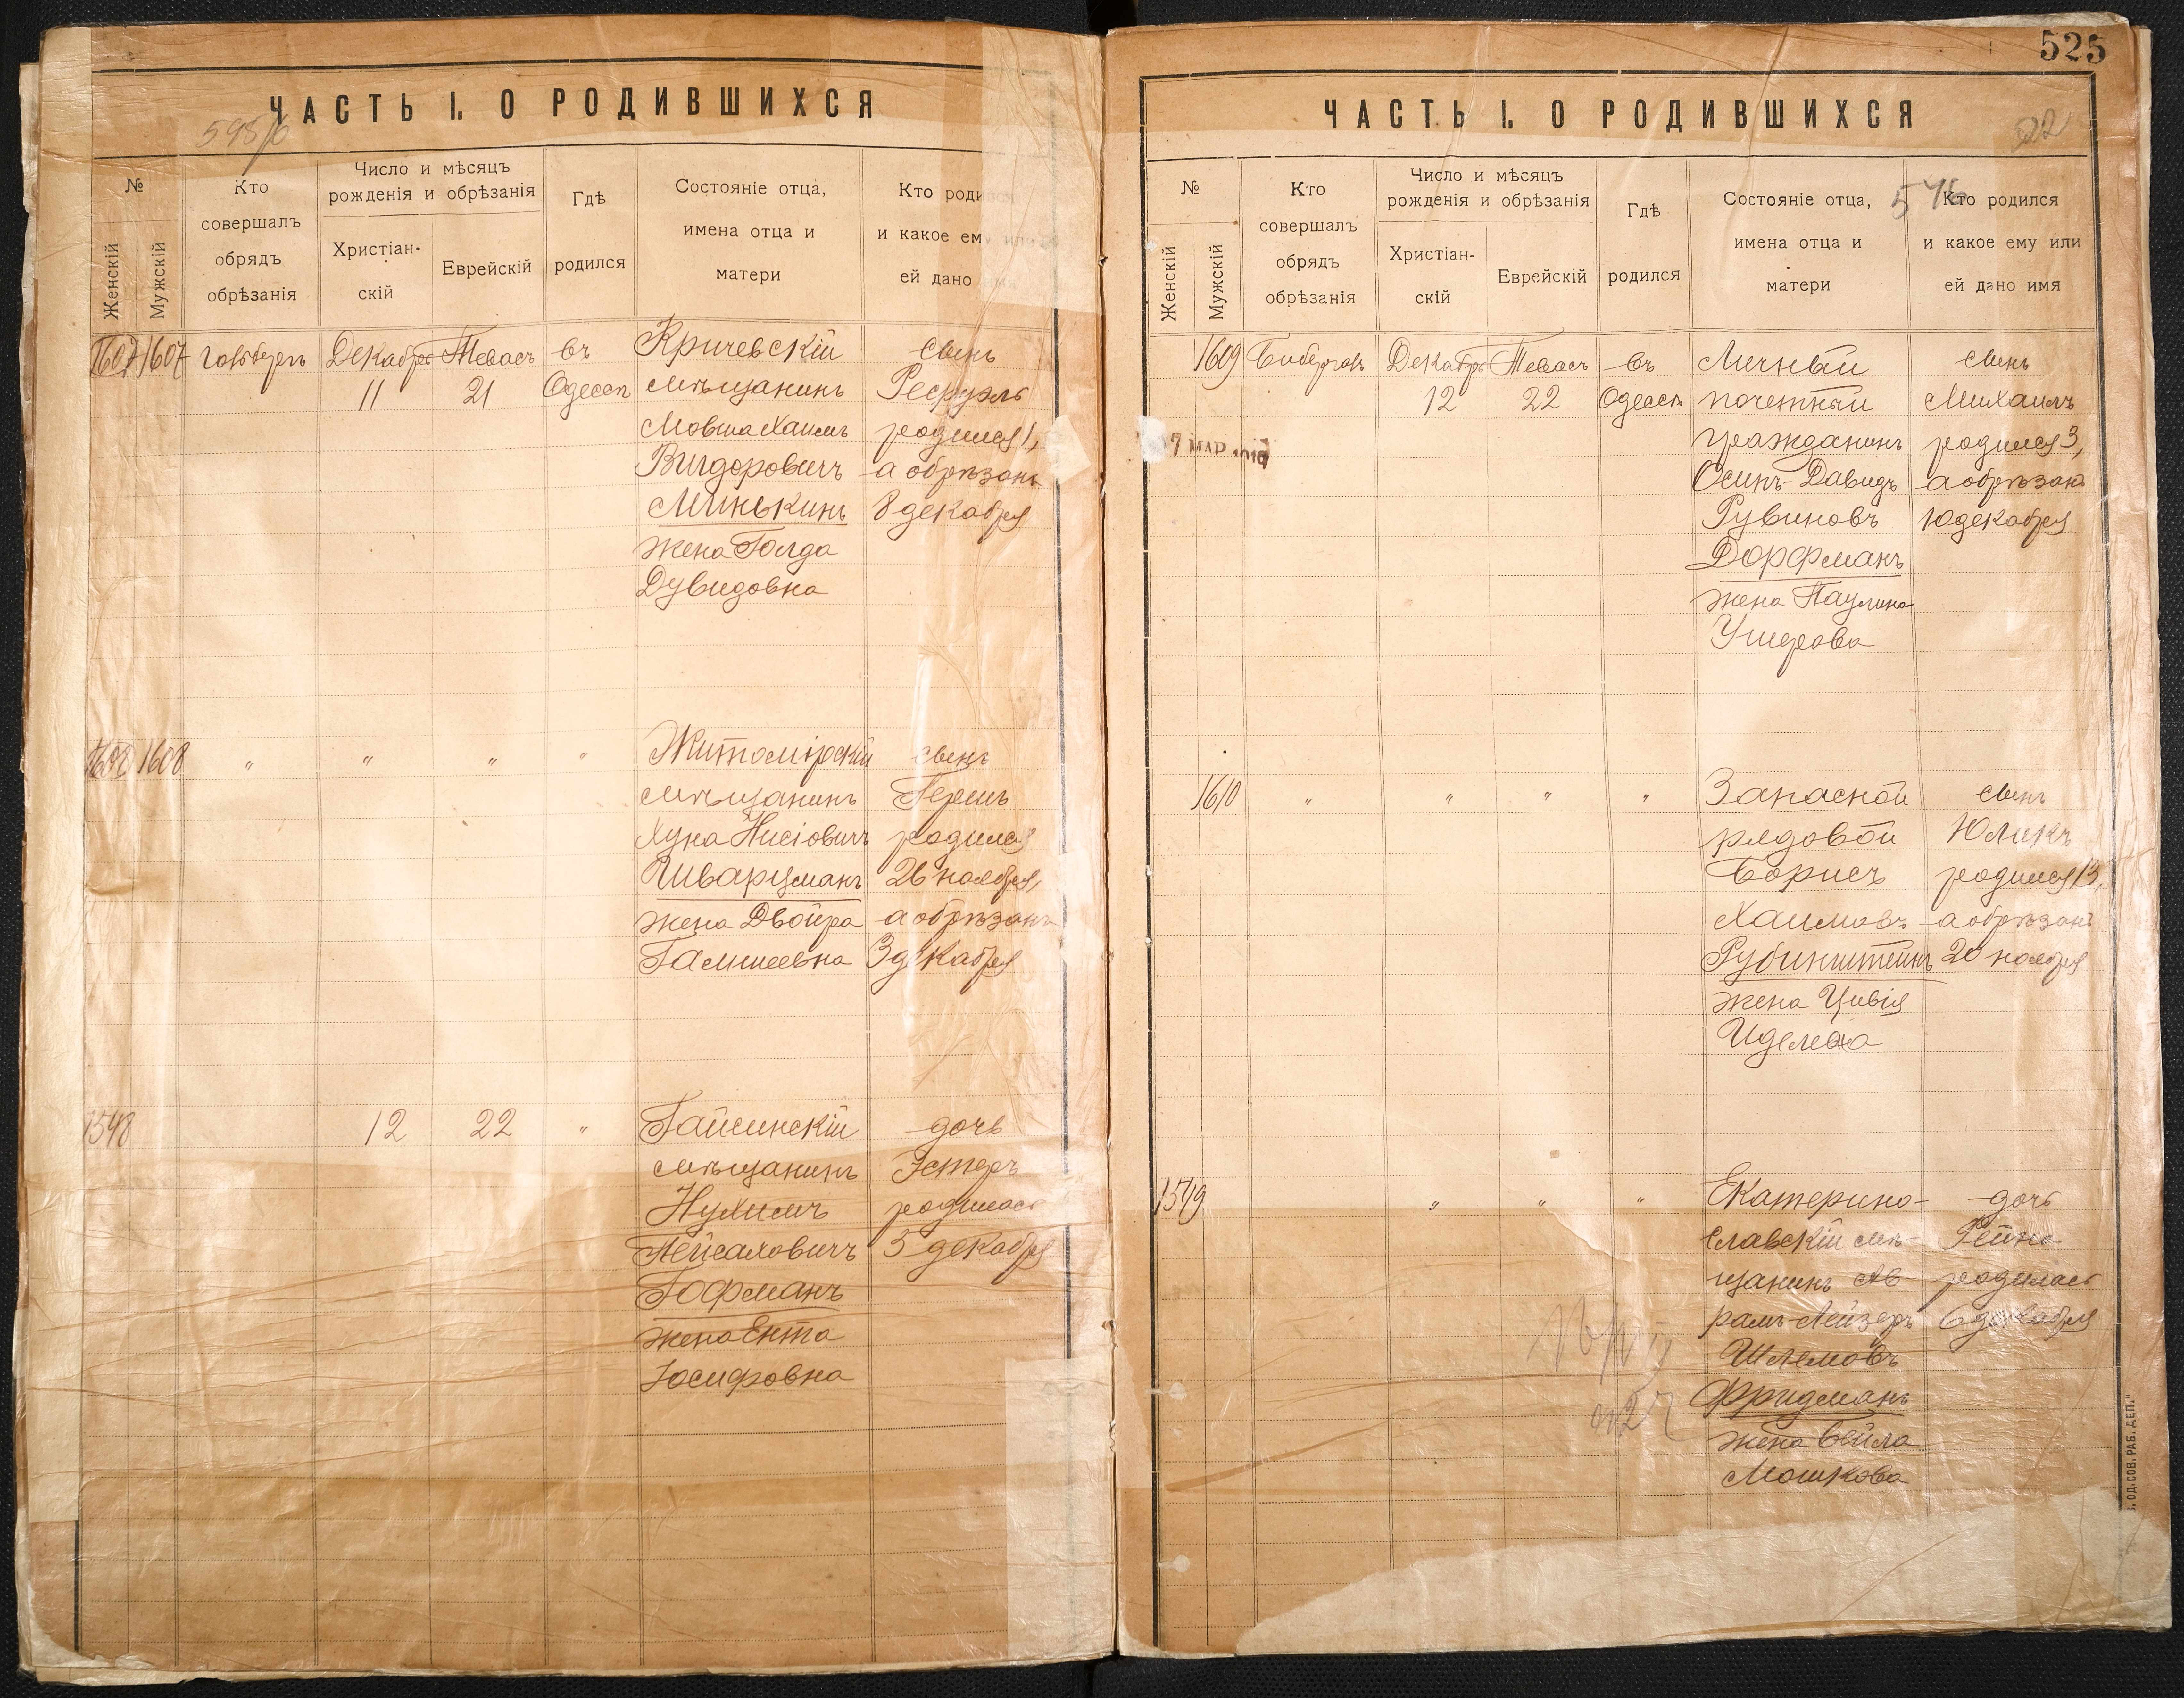 ЧАСТЬ I. О РОДИВШИХСЯ
№
Женскій
Мужскій
Кто
совершалъ
обрядъ
обрѣзанія
Число и мѣсяцъ
рожденія и обрѣзанія
Христіан-
скій
Еврейскій
Гдѣ
родился
Состояніе отца,
имена отца и
матери
Кто родился
и какое ему или
ей дано имя
1607 1607
Декабря
11
Тевасъ
21
въ
Одессѣ
Кричевскій
мѣщанинъ
Мовша Хаимъ
Вигдоровичъ
Минькинъ
жена Голда
Дувидовна
сынъ
родился 1,
а обрѣзанъ
8 декабря
1608 1608
" " " "
Житомірскій
мѣщанинъ
Хуна Нисіовичъ
Шварцманъ
жена Двойра
сынъ
Гершъ
родился
26 ноября,
а обрѣзанъ
3 декабря
1548
12
22
"
Гайсинскій
мѣщанинъ
Нухимъ
Пейсаховичъ
Гофманъ
жена Ента
Іосифовна
дочь
Эстеръ
родилась
5 декабря
525
ЧАСТЬ I. О РОДИВШИХСЯ
522
546
№
Женскій
Мужскій
Кто
совершалъ
обрядъ
обрѣзанія
Число и мѣсяцъ
рожденія и обрѣзанія
Христіан-
скій
Еврейскій
Гдѣ
родился
Состояніе отца,
имена отца и
матери
Кто родился
и какое ему или
ей дано имя
1609
Декабря
12
Тевасъ
22
въ
Одессѣ
Личный
почетный
гражданинъ
Осипъ-Давидъ
Рувиновъ
Дорфманъ
жена Паулина
сынъ
Михаилъ
родился 3,
а обрѣзанъ
10 декабря
7 МАР
1610
" " " "
Запасной
рядовой
Борисъ
Хаимовъ
Рубинштейнъ
жена Цивія
Иделева
сынъ
Юликъ
родился 13,
а обрѣзанъ
20 ноября
1549
" " "
Екатерино-
славскій мѣ-
щанинъ Ав-
рамъ-Лейзеръ
Шлемовъ
Фридманъ
жена Бейла
Мошкова
дочь
Рейна
родилась
6 декабря
ОД.СОВ.РАБ.ДЕП.